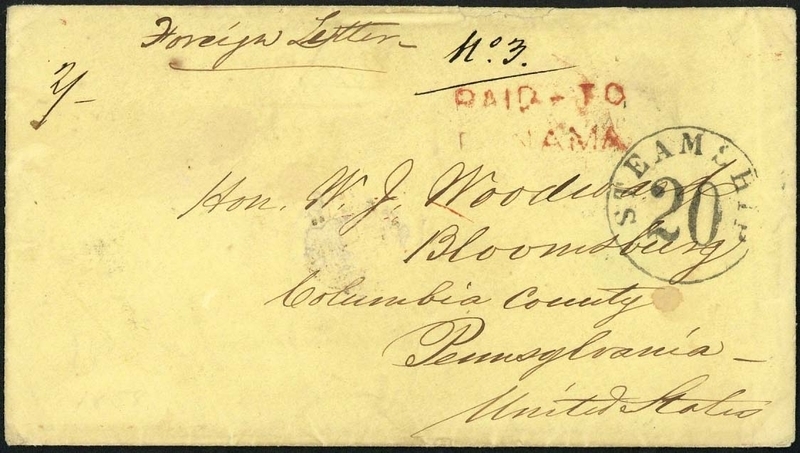 Foreign Letter
No. 3.
2/-
PAID-TO
PANAMA
STEAMSHIP
20
Hon. W. J. Woodward
Bloomsburg
Columbia County
Pennsylvania -
United States